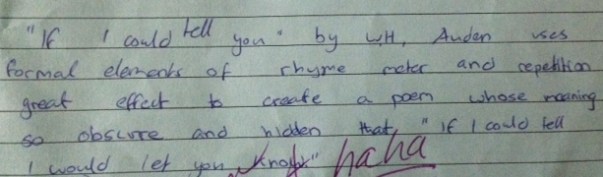 "If I could tell you" by W.H. Auden uses
formal elements of rhyme meter and repetition
great effect to create a poem whose meaning
so obscure and hidden that, "If I could tell
I would let you know" haha